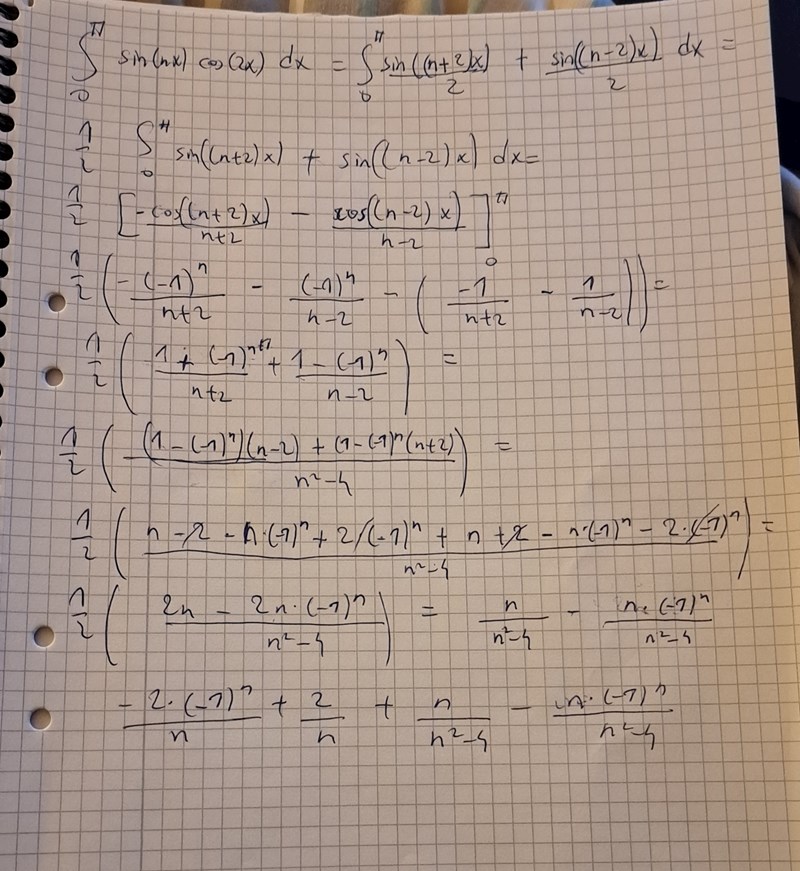 ∫₀^π sin(nx) cos(2x) dx = ∫₀^π sin((n+2)x)/2 + sin((n-2)x)/2 dx =
1/2 ∫₀^π sin((n+2)x) + sin((n-2)x) dx =
1/2 [-cos((n+2)x)/(n+2) - cos((n-2)x)/(n-2)]₀^π
1/2 (-(-1)^n/(n+2) - (-1)^n/(n-2) - (-1/(n+2) - 1/(n-2))) =
1/2 ((1+(-1)^(n+1))/(n+2) + (1-(-1)^n)/(n-2)) =
1/2 (((1-(-1)^n)(n-2) + (1-(-1)^n(n+2))/(n²-4)) =
1/2 ((n - 2 - n·(-1)^n + 2(-1)^n + n + 2 - n·(-1)^n - 2·(-1)^n)/(n²-4)) =
1/2 ((2n - 2n·(-1)^n)/(n²-4)) = n/(n²-4) - n·(-1)^n/(n²-4)
-2·(-1)^n/n + 2/n + n/(n²-4) - n·(-1)^n/(n²-4)